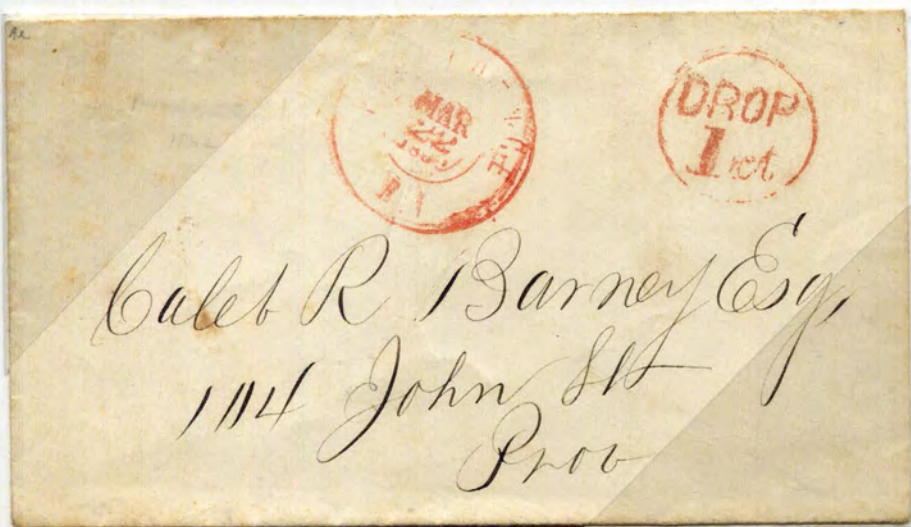 MAR
22
R I
DROP
1 ct
Caleb R Barney Esq,
104 John St
Prov